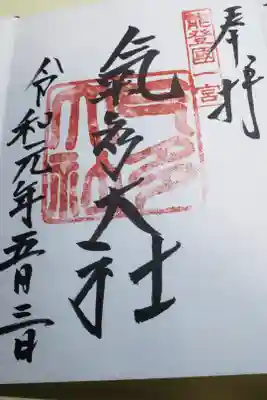 奉拝
能登國一宮
氣多大社
令和元年五月三日